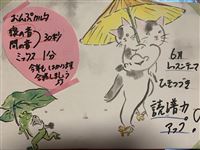 おんぷカルタ
猿の音
間の音
30秒
ミックス 1分
今年もはりきって
合格しましょう
6月
レッスンテーマ
ひきつづき
読譜力
アップ